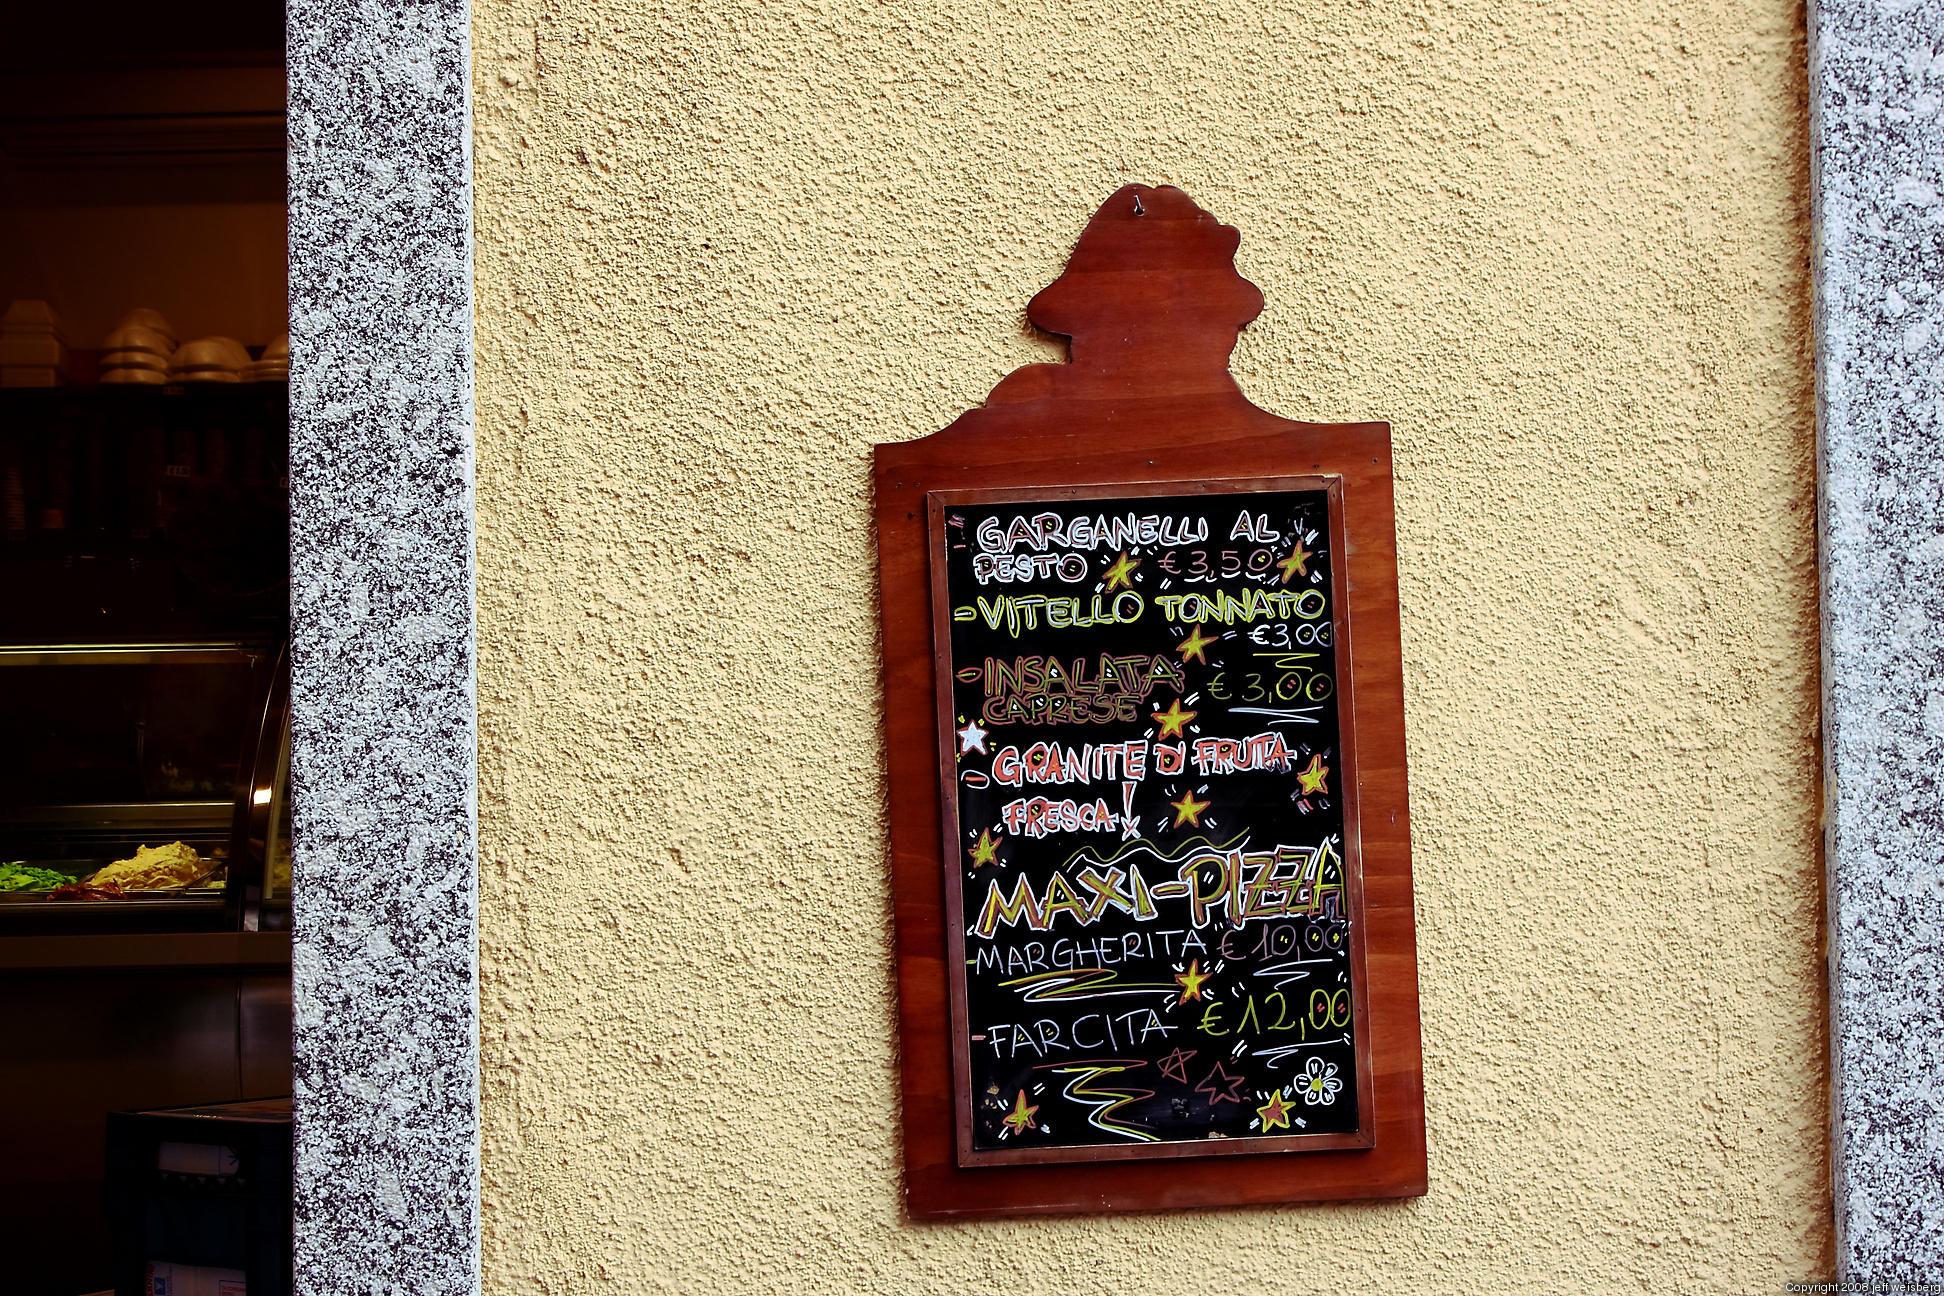 - GARGANELLI AL
PESTO € 3,50
- VITELLO TONNATO
€3,00
- INSALATA € 3,00
CAPRESE
- GRANITE DI FRUTTA
FRESCA!
MAXI-PIZZA
- MARGHERITA € 10,00
- FARCITA € 12,00
Copyright 2008 jeff weisberg